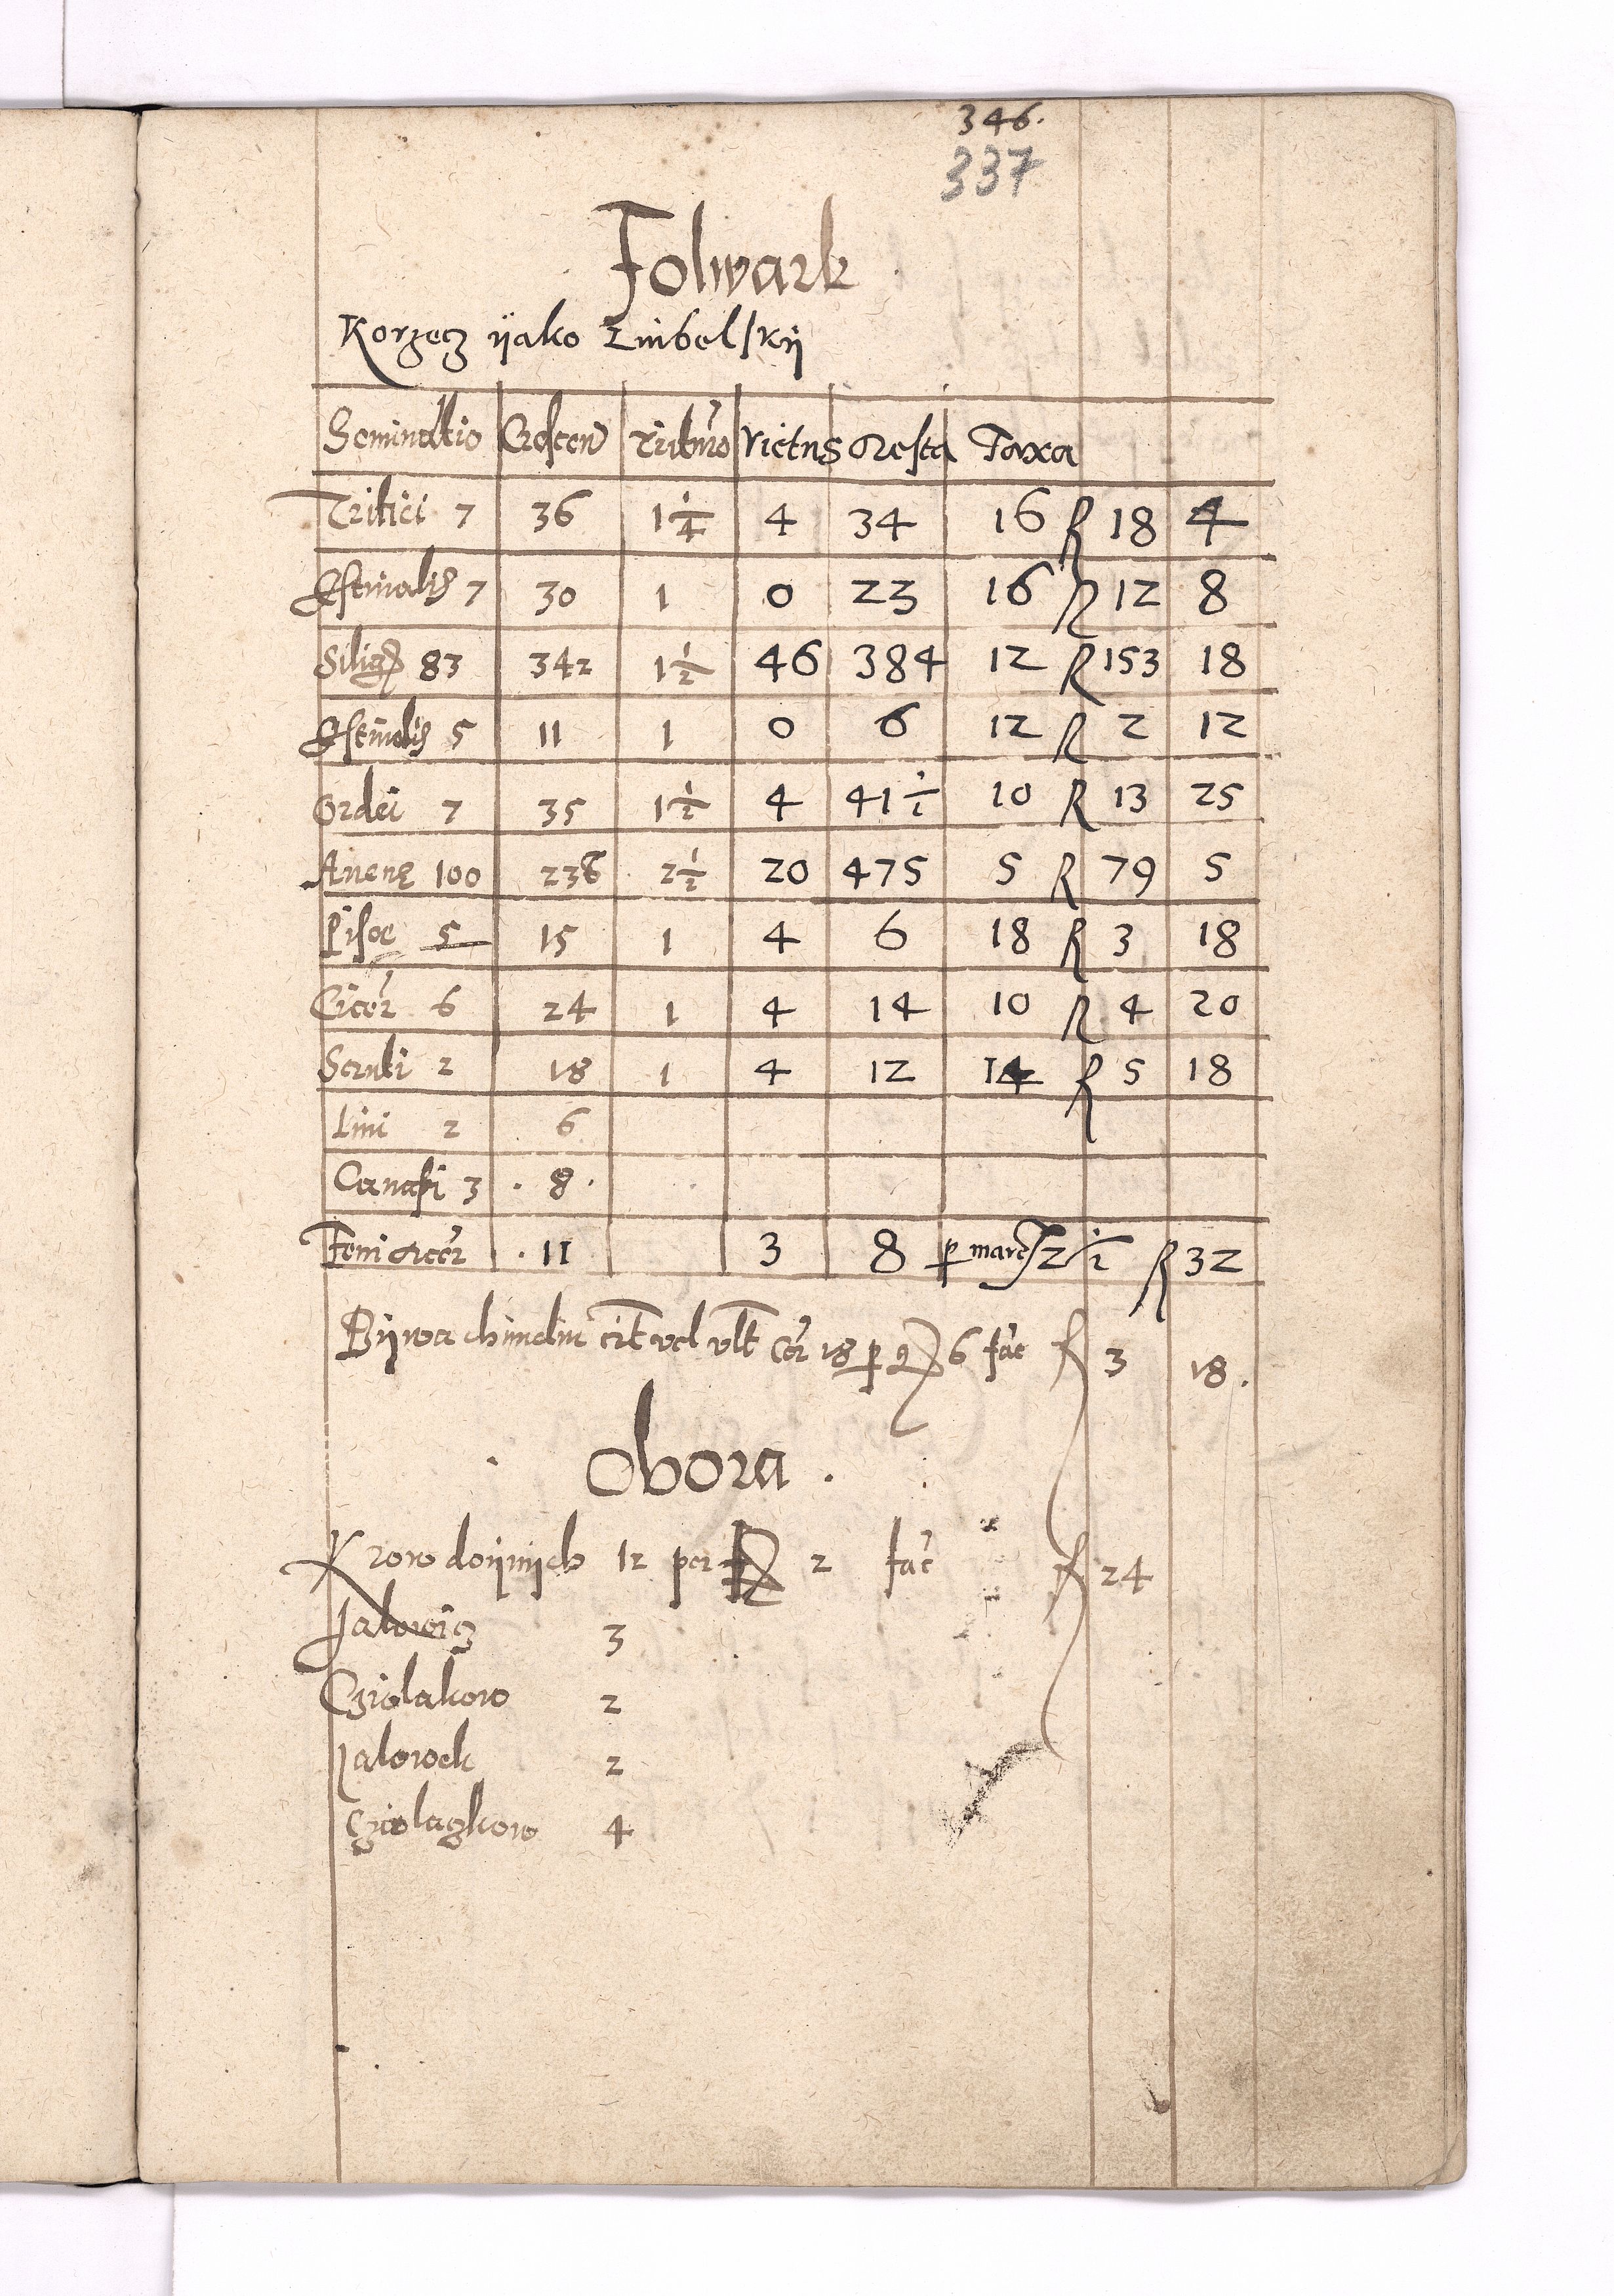 346.
337
Folwark
Korzecz ÿako Lubelskÿ
Seminatio Crescen Tritur̃o Victus Resta Taxa
Tritici 7 36 1 1/4 4 34 16 R 18 4
Estiualis 7 30 1 0 23 16 R 12 8
Silig 83 342 1 1/2 46 384 12 R 153 18
Estiualis 5 11 1 0 6 12 R 2 12
Ordei 7 35 1 1/2 4 41 1/2 10 R 13 25
Auenę 100 238 2 1/2 20 475 5 R 79 5
Pisae 5 15 1 4 6 18 R 3 18
Cicer 6 24 1 4 14 10 R 4 20
2 18 1 4 12 14 R 5 18
Lini 2 6
Canapi 3 . 8 .
Feni Acer . 11 3 8 p marc 2 1/2 R 32
Bÿwa vel vlt Cor 18 p g 6 fac̃ f 3 18 .
Obora .
Krow doÿnÿch 12 per f 2 fac̃ f 24
Jalowicz 3
Cziolakow 2
Jalowek 2
Cziolaczkow 4